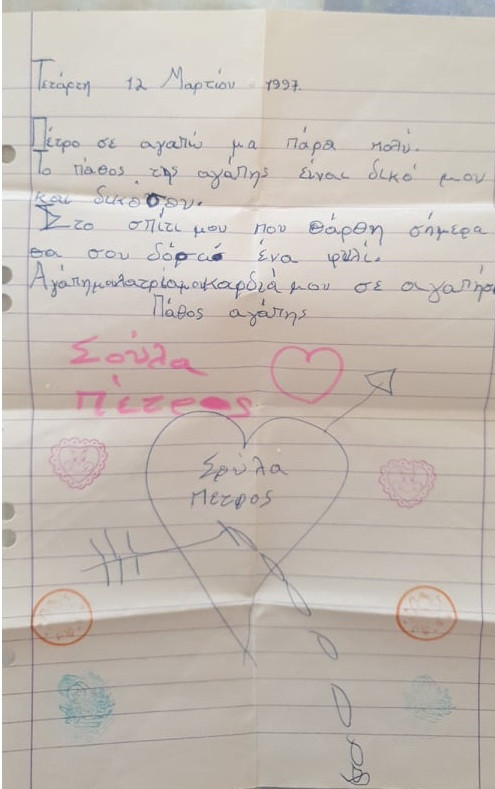 Τετάρτη 12 Μαρτίου 1997.
Πέτρο σε αγαπώ μα πάρα πολύ.
Το πάθος της αγάπης είναι δικό μου
και δικό σου.
Στο σπίτι μου που θάρθη σήμερα
θα σου δόσω ένα φιλί.
Αγάπημουλατρίαμουκαρδιά μου σε αγαπήσ
Πάθος αγάπης
Σούλα
Πέτρος
Σούλα
Πετρος